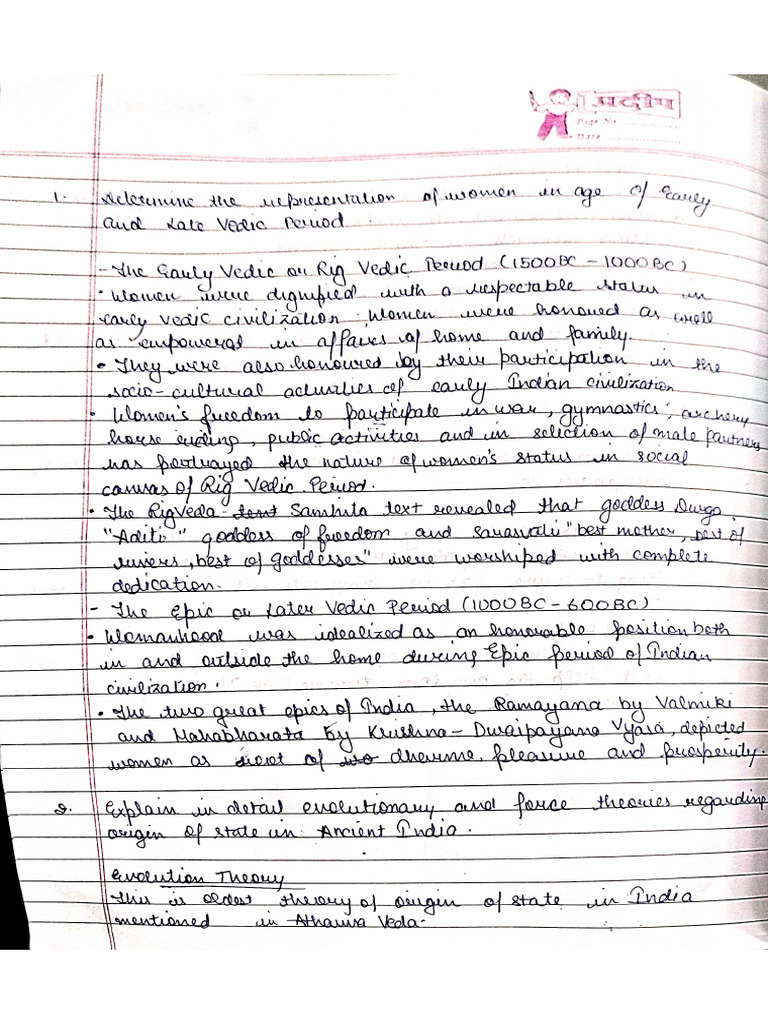 प्रदीप
Page No.
Date
1. Determine the representation of women in age of Early
and Late Vedic Period.
- The Early Vedic or Rig Vedic Period (1500BC - 1000BC)
• Women were dignified with a respectable status in
early vedic civilization, Women were honoured as well
as empowered in affairs of home and family.
• They were also honoured by their participation in the
socio-cultural activities of early Indian civilization
• Women's freedom to participate in war, gymnastics, archery
horse riding, public activities and in selection of male partners
has portrayed the nature of women's status in social
canvas of Rig Vedic Period.
• The RigVeda - text Samhita text revealed that goddess Durga,
"Aditi" goddess of freedom and Sarasvati "best mother, best of
rivers, best of goddesses" were worshiped with complete
dedication.
- The Epic or Later Vedic Period (1000BC - 600BC)
• Womanhood was idealized as an honorable position both
in and outside the home during Epic period of Indian
civilization.
• The two great epics of India, the Ramayana by Valmiki
and Mahabharata by Krishna - Dwaipayana Vyasa, depicted
women as root of dharma, pleasure and prosperity.
2. Explain in detail evolutionary and force theories regarding
origin of state in Ancient India.
Evolution Theory
This is oldest theory of origin of state in India
mentioned in Atharva Veda-